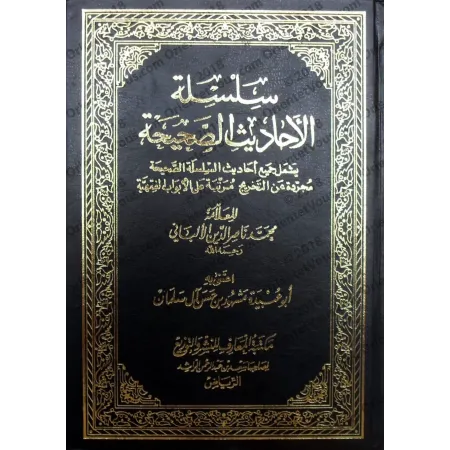 سلسلة
الأحاديث الصحيحة
يشمل جميع أحاديث السلسلة الصحيحة
مجردة عن التخريج مرتبة على الأبواب الفقهية
للعلامة
محمد ناصر الدين الألباني
رحمه الله
اعتنى به
أبو عبيدة مشهور بن حسن آل سلمان
مكتبة المعارف للنشر والتوزيع
لصاحبها سعد بن عبد الرحمن الراشد
الرياض